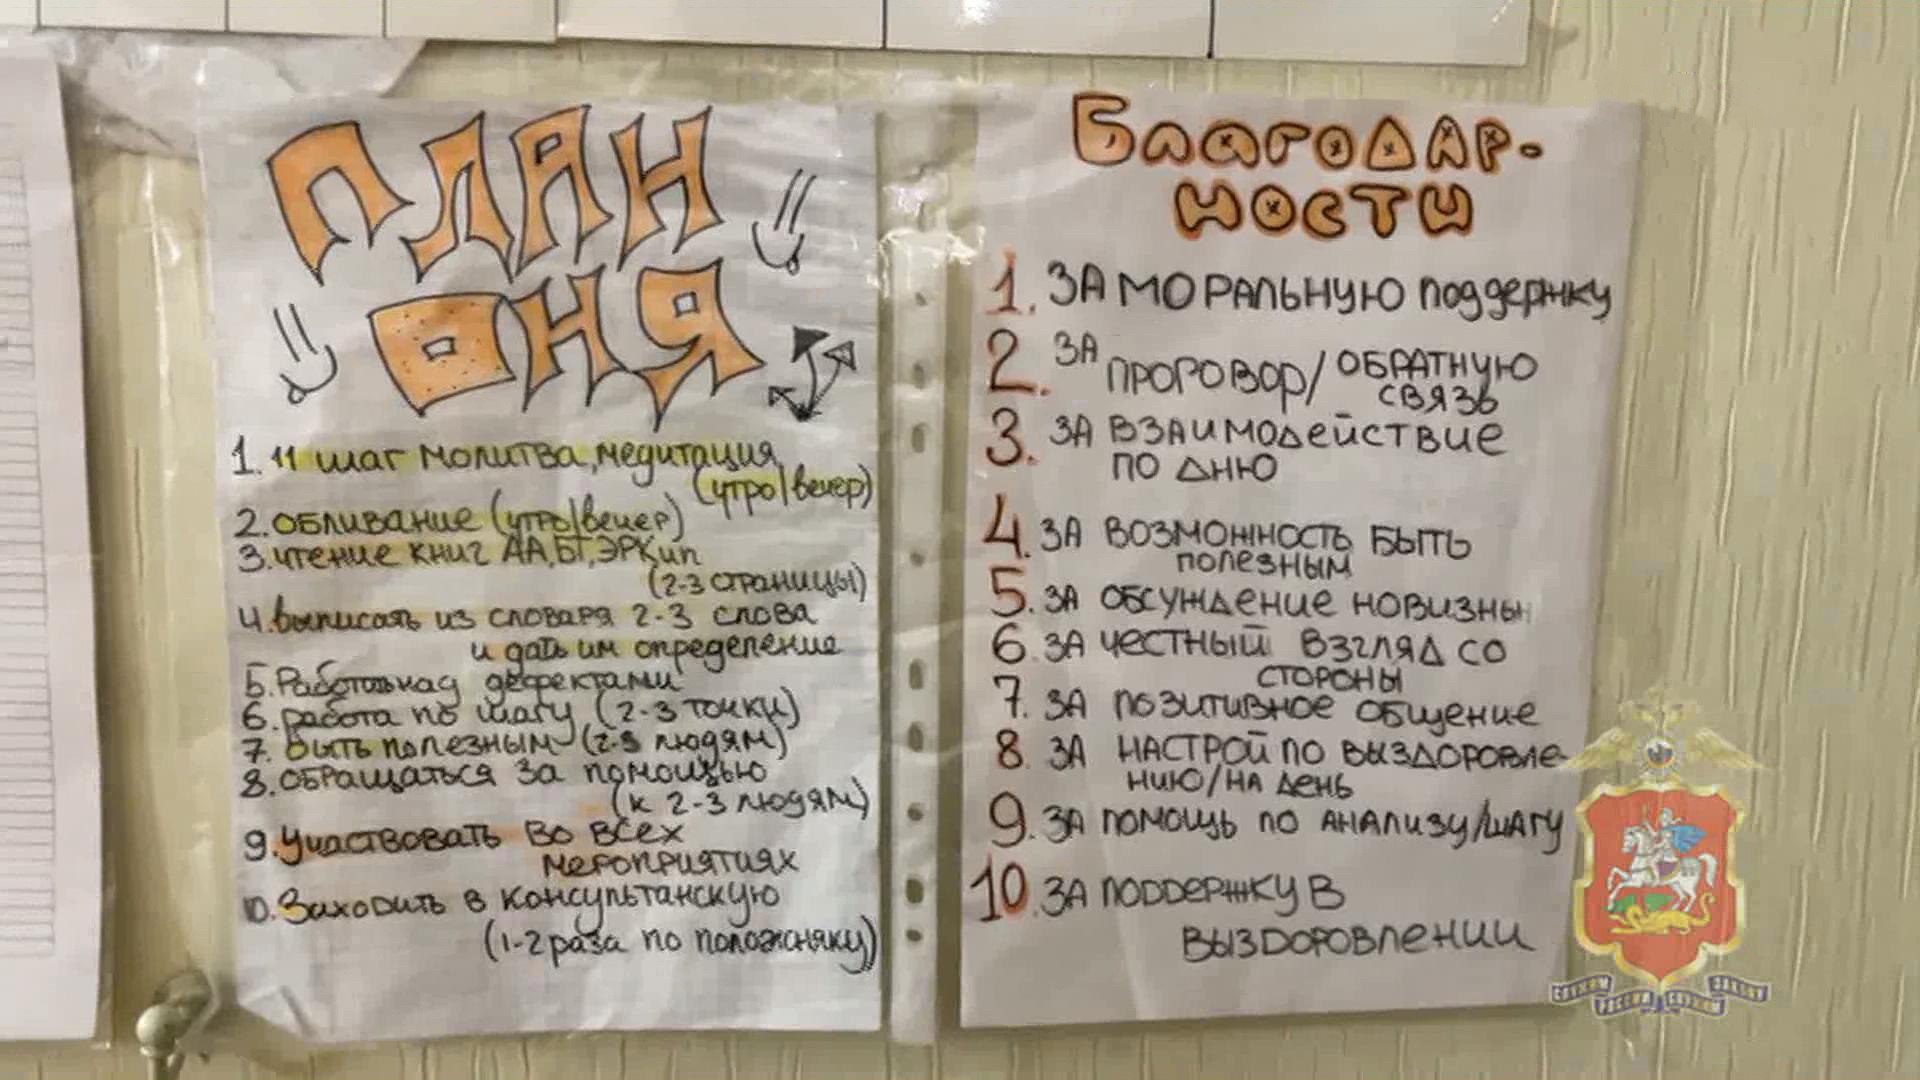 ПЛАН
ДНЯ
1. 11 шаг молитва, медитация
(утро/вечер)
2. обливание (утро/вечер)
3. чтение книг АА, БГ, ЭРКип
(2-3 страницы)
4. выписать из словаря 2-3 слова
и дать им определение
5. Работа над дефектами
6. работа по шагу (2-3 точки)
7. быть полезным (2-3 людям)
8. обращаться за помощью
(к 2-3 людям)
9. Участвовать во всех
мероприятиях
10. Заходить в консультанскую
(1-2 раза по положняку)
Благодар-
ности
1. За моральную поддержку
2. За проговор/обратную
связь
3. За взаимодействие
по дню
4. За возможность быть
полезным
5. За обсуждение новизны
6. За честный взгляд со
стороны
7. За позитивное общение
8. За настрой по выздоровле-
нию/на день
9. За помощь по анализу/шагу
10. За поддержку в
выздоровлении
СЛУЖИМ РОССИИ СЛУЖИМ ЗАКОНУ